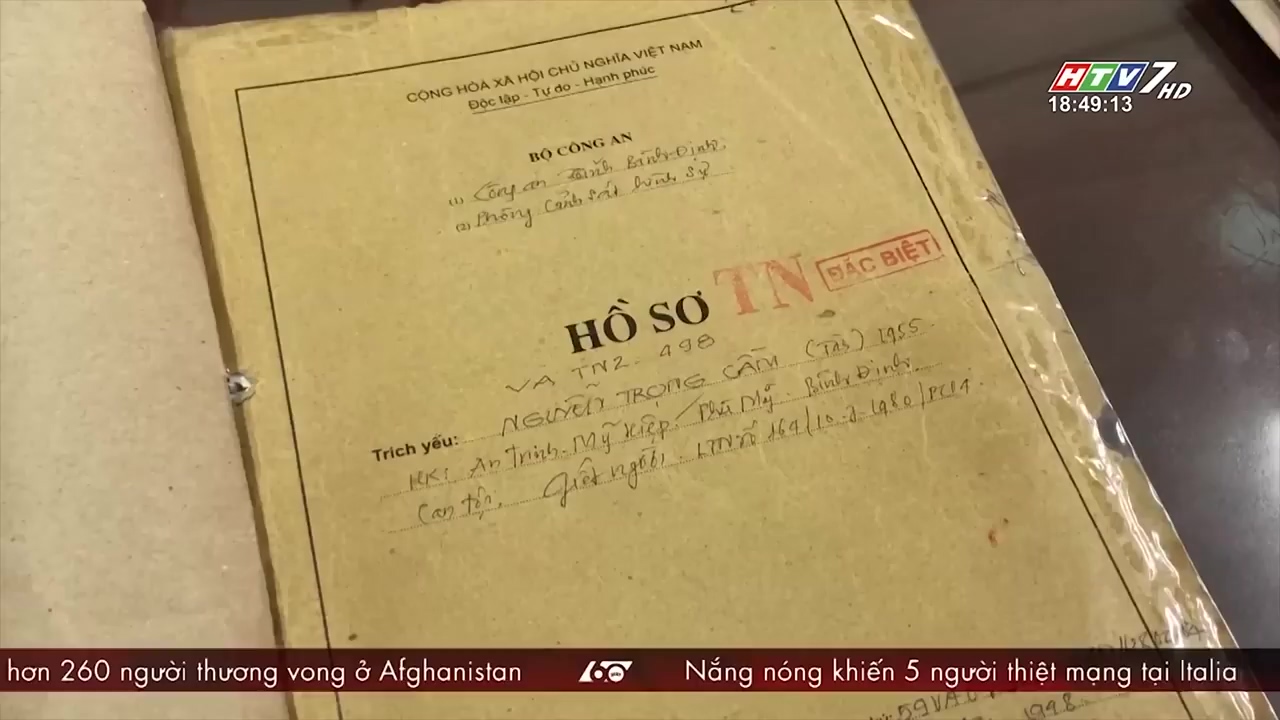 HTV7 HD
18:49:13
CỘNG HÒA XÃ HỘI CHỦ NGHĨA VIỆT NAM
Độc lập - Tự do - Hạnh phúc
BỘ CÔNG AN
(1) Công an Tỉnh Bình Định.
(2) Phòng Cảnh sát hình sự
HỒ SƠ TN ĐẶC BIỆT
VA TN2 - 498
Trích yếu: NGUYỄN TRỌNG CẦM 1955
An Trinh - Mỹ Hiệp / Phù Mỹ - Bình Định.
Can tội: Giết người. LTN số 164/10-7-1980/PC14.
1998
hơn 260 người thương vong ở Afghanistan 60 giây Nắng nóng khiến 5 người thiệt mạng tại Italia